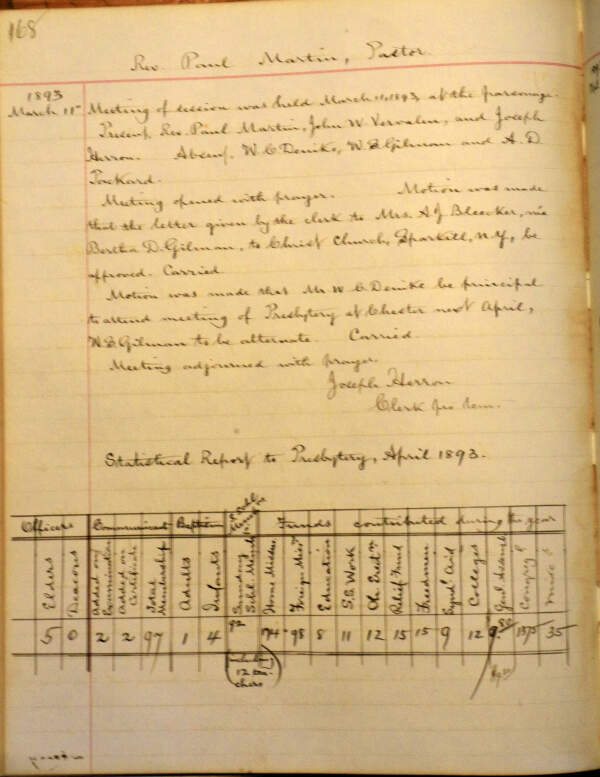 168
Rev. Paul Martin, Pastor.
1893
March 11th
Meeting of session was held March 11, 1893, at the parsonage.
Present, Rev. Paul Martin, John W. Vervalen, and Joseph
Herron. Absent, W. C. Denike, W. S. Gilman and A. D.
Packard.
Meeting opened with prayer. Motion was made
that the letter given by the clerk to Mrs. A. J. Bleecker, née
Bertha D. Gilman, to Christ Church, Sparkill, N.Y., be
approved. Carried.
Motion was made that Mr. W. C. Denike be principal
to attend meeting of Presbytery at Chester next April,
W. S. Gilman to be alternate. Carried.
Meeting adjourned with prayer.
Joseph Herron
Clerk pro tem.
Statistical Report to Presbytery, April 1893.
Officers Communicants Baptism Funds contributed during the year
Elders Deacons Added on Examination Added on Certificate Total Membership Adults Infants Sunday Schl. Memb. Home Miss. Foreign Miss. Education S.S. Work Ch. Erectn. Relief Fund Freedmen Synd. Aid Colleges Genl. Assemb. Congregl.
5 0 2 2 97 1 4 92 174 98 8 11 12 15 15 9 12 9.80 1375 35
(including 12 teachers)